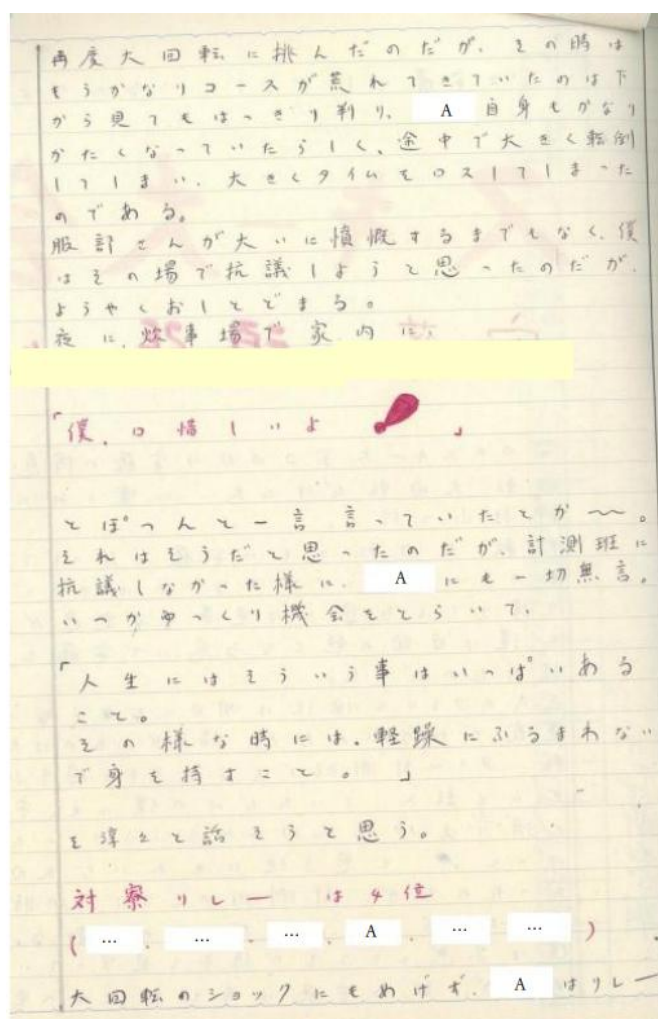 再度大回転に挑んだのだが、その時は
もうかなりコースが荒れてきていたのは下
から見てもはっきり判り、A自身もかなり
かたくなっていたらしく、途中で大きく転倒
してしまい、大きくタイムをロスしてしまった
のである。
服部さんが大いに憤慨するまでもなく、僕
はその場で抗議しようと思ったのだが、
ようやくおしとどまる。
夜に、炊事場で家内に、
「僕、口惜しいよ!」
とぽつんと一言言っていたとか〜。
それはそうだと思ったのだが、計測班に
抗議しなかった様に、Aにも一切無言。
いつかゆっくり機会をとらいて、
「人生にはそういう事はいっぱいある
こと。
その様な時には、軽躁にふるまわない
で身を持すこと。」
を淳々と話そうと思う。
対寮リレーは4位
(…、…、…、A、…、…)
大回転のショックにもめげず、Aはリレー